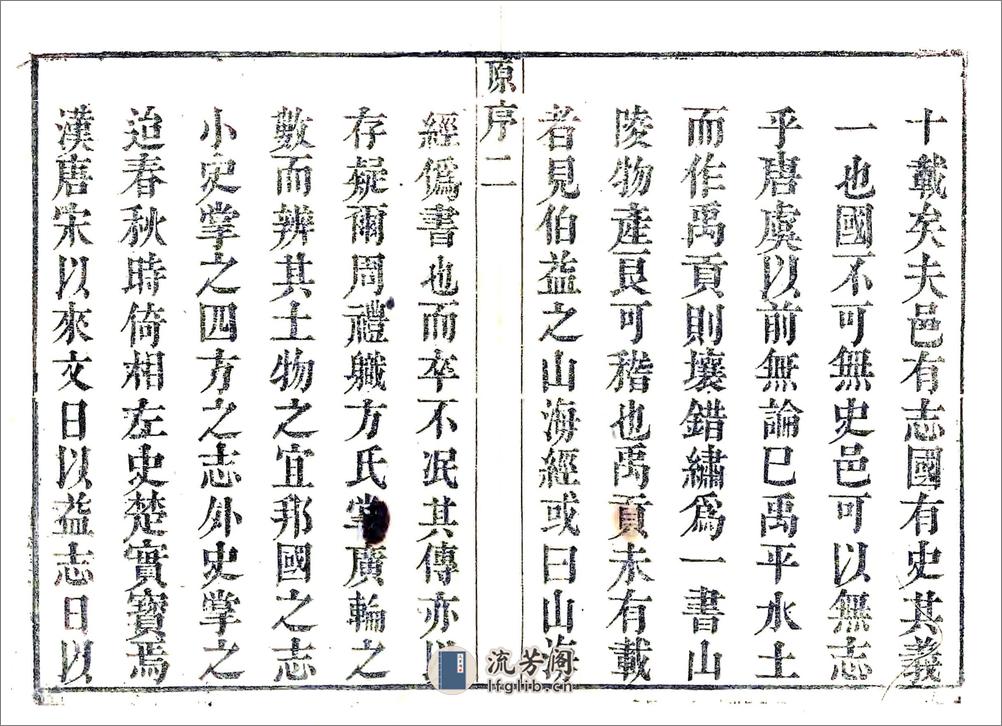 十載矣夫邑有志國有史其義
一也國不可無史邑可以無志
乎唐虞以前無論已禹平水土
而作禹貢則壤錯繡爲一書山
陵物產艮可稽也禹貢未有載
者見伯益之山海經或曰山海
原序二
經僞書也而卒不泯其傳亦以
存疑爾周禮職方氏掌廣輪之
數而辨其土物之宜邦國之志
小史掌之四方之志外史掌之
迨春秋時倚相左史楚實寶焉
漢唐宋以來文日以益志日以
流芳阁
lfglib.cn